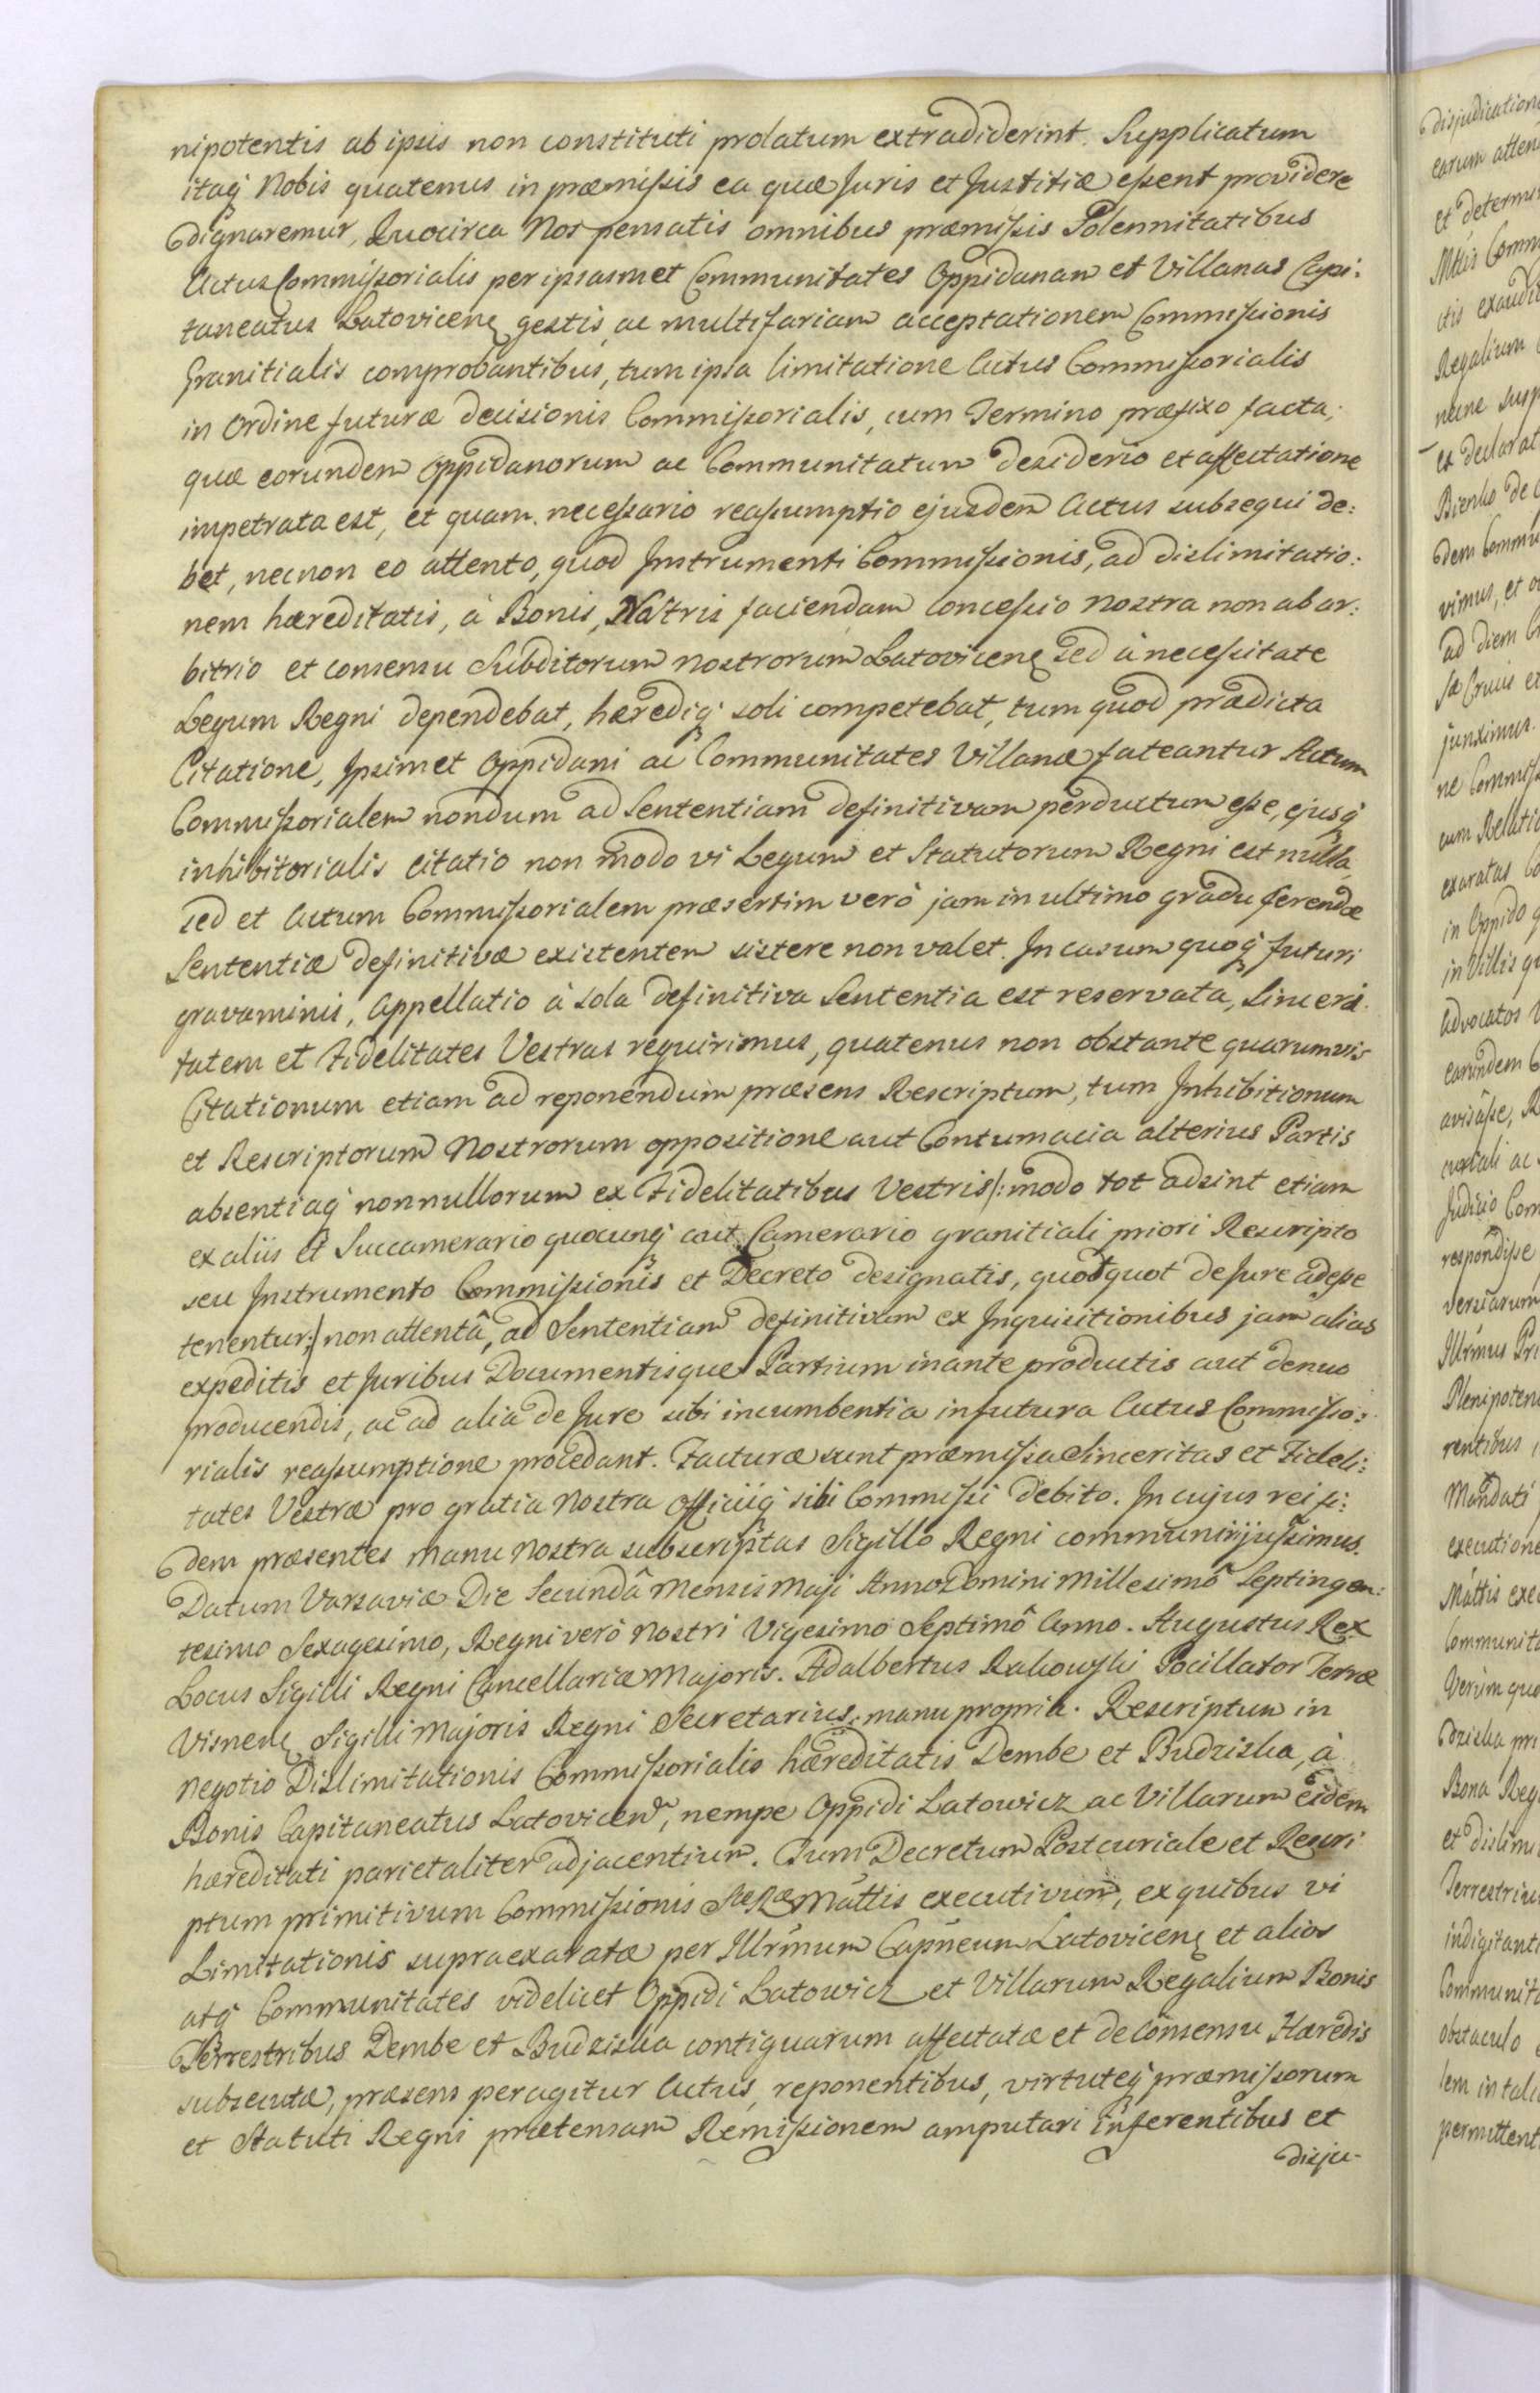 nipotentis ab ipsis non constituti prolatum extradiderint. Supplicatum
itaq Nobis quatenus in præmissis ea quæ Juris et Justitiæ essent providere
dignaremur, Quocirca Nos pensatis omnibus præmissis Solennitatibus
Actus Commissorialis per ipsasmet Communitates Oppidanam et Villanas Capi:
taneatus Latovicen gestis, ac multifariam acceptationem Commissionis
Granitialis comprobantibus, tum ipsa limitatione Actus Commissorialis
in Ordine futuræ decisionis Commissorialis, cum Termino præfixo facta,
quæ eorundem Oppidanorum ac Communitatum desiderio et affectatione
impetrata est, et quam necessario reassumptio ejusdem Actus subsequi de:
bet, necnon eo attento, quod Instrumenti Commissionis, ad dislimitatio:
nem hæreditatis, à Bonis Nostris faciendam concessio nostra non ab ar:
bitrio et consensu Subditorum nostrorum Latovicen sed à necessitate
Legum Regni dependebat, hærediq soli competebat, tum quod prædicta
Citatione, Ipsimet Oppidani ac Communitates Villanæ fateantur Actum
Commissorialem nondum ad Sententiam definitivam perductum esse, ejusq
inhibitorialis citatio non modo vi Legum et Statutorum Regni est nulla,
sed et Actum Commissorialem præsertim verò jam in ultimo gradu ferendæ
Sententiæ definitivæ existentem sistere non valet. In casum quoq futuri
gravaminis, Appellatio à sola definitiva Sententia est reservata, Sinceri:
tatem et Fidelitates Vestras requirimus, quatenus non obstante quarumvis
Citationum etiam ad reponendum præsens Rescriptum, tum Inhibitionum
et Rescriptorum Nostrorum oppositione aut Contumacia alterius Partis
absentiaq nonnullorum ex Fidelitatibus Vestris /: modo tot adsint etiam
ex aliis et Succamerario quocunq aut Camerario granitiali priori Rescripto
seu Instrumento Commissionis et Decreto designatis, quodquot de Jure adesse
tenentur :/ non attentâ, ad Sententiam definitivam ex Inquisitionibus jam alias
expeditis et Juribus Documentisque Partium inante productis aut denuo
producendis, ac ad alia de Jure sibi incumbentia in futura Actus Commisso:
rialis reassumptione procedant. Facturæ sunt præmissa Sinceritas et Fideli:
tates Vestræ pro gratia Nostra Officiiq sibi Commissi debito. In cujus rei fi:
dem præsentes manu Nostra subscriptas Sigillo Regni communiri jussimus.
Datum Varsaviæ Die Secundâ Mensis Maji Anno Domini Millesimô Septingen:
tesimo Sexagesimo, Regni verò Nostri Vigesimo Septimô Anno. Augustus Rex
Locus Sigilli Regni Cancellariæ Majoris. Adalbertus Rakowski Pocillator Terræ
Visnen Sigilli Majoris Regni Secretarius. manu propria. Rescriptum in
negotio Dislimitationis Commissorialis hæreditatis Dembe et Budziska, à
Bonis Capitaneatus Latovicen, nempe Oppidi Latowicz ac Villarum eidem
hæreditati parietaliter adjacentium. Tum Decretum Postcuriale et Rescri
ptum primitivum Commissionis SRæ Mattis executivum, ex quibus vi
Limitationis supraexaratæ per Illrmum Capneum Latovicen et alios
atq Communitates videlicet Oppidi Latowicz et Villarum Regalium Bonis
Terrestribus Dembe et Budziska contiguarum affectatæ et de Consensu Hæredis
subsecutæ, præsens peragitur Actus, reponentibus, virtuteq præmissorum
et Statuti Regni prætensam Remissionem amputari inferentibus et
disju-